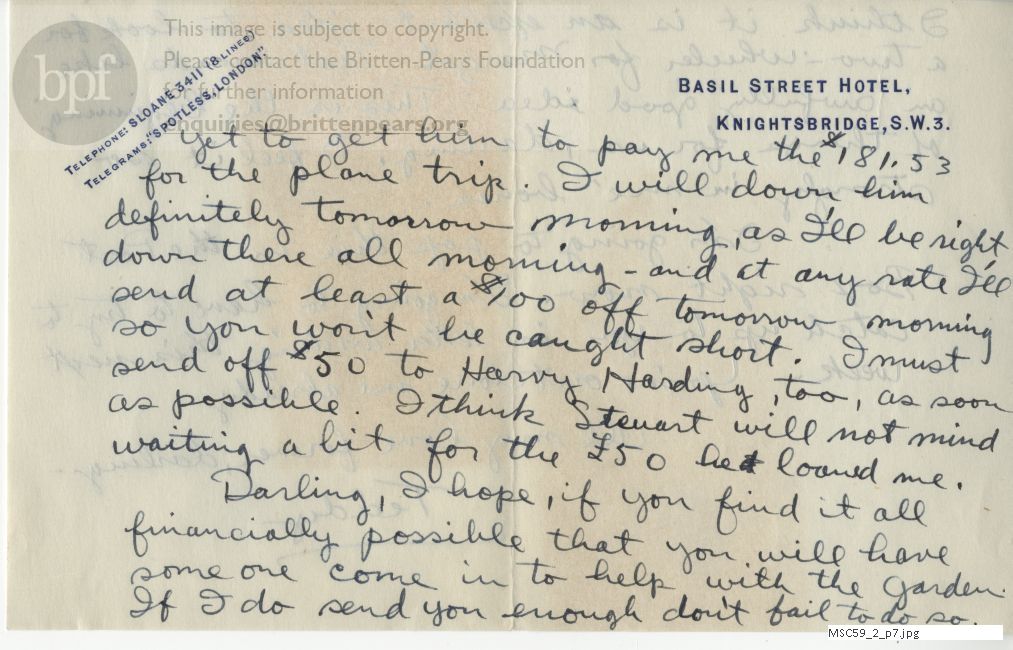 This image is subject to copyright.
Please contact the Britten-Pears Foundation
for further information
enquiries@brittenpears.org
bpf
TELEPHONE: SLOANE 3411 (8 LINES)
TELEGRAMS: "SPOTLESS, LONDON"
BASIL STREET HOTEL,
KNIGHTSBRIDGE, S.W.3.
yet to get him to pay me the $181.53
for the plane trip. I will down him
definitely tomorrow morning, as I'll be right
down there all morning - and at any rate I'll
send at least a $100 off tomorrow morning
so you won't be caught short. I must
send off $50 to Harvy Harding, too, as soon
as possible. I think Steuart will not mind
waiting a bit for the £50 he loaned me.
Darling, I hope, if you find it all
financially possible that you will have
some one come in to help with the garden.
If I do send you enough don't fail to do so.
MSC59_2_p7.jpg